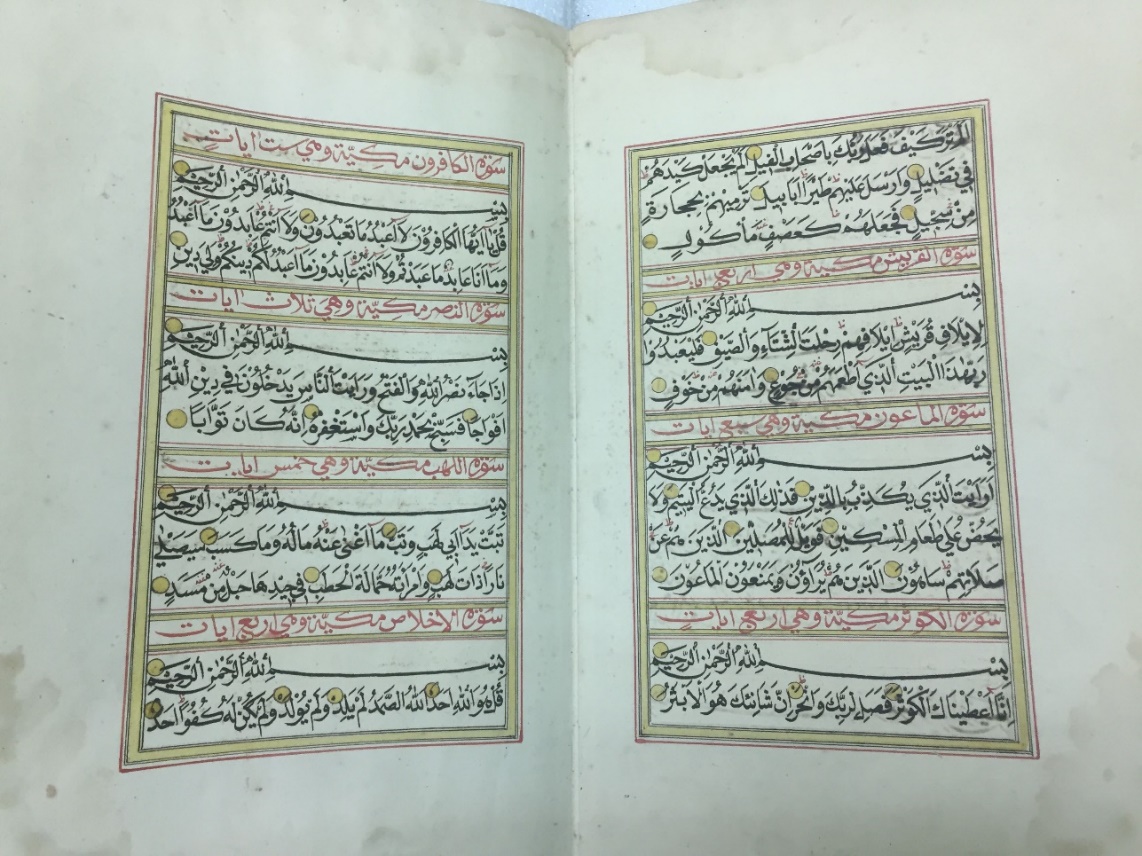 الم تر كيف فعل ربك باصحاب الفيل الم يجعل كيدهم
في تضليل وارسل عليهم طيرا ابابيل ترميهم بحجارة
من سجيل فجعلهم كعصف مأكول
سورة القريش مكية وهي اربع ايات
بسم الله الرحمن الرحيم
لايلاف قريش ايلافهم رحلت الشتاء والصيف فليعبدوا
رب هذا البيت الذي اطعمهم من جوع وامنهم من خوف
سورة الماعون مكية وهي سبع ايات
بسم الله الرحمن الرحيم
ارايت الذي يكذب بالدين فذلك الذي يدع اليتيم ولا
يحض على طعام المسكين فويل للمصلين الذين هم عن
صلاتهم ساهون الذين هم يراؤن ويمنعون الماعون
سورة الكوثر مكية وهي اربع ايات
بسم الله الرحمن الرحيم
انا اعطيناك الكوثر فصل لربك وانحر ان شانئك هو الابتر
سورة الكافرون مكية وهي ست ايات
بسم الله الرحمن الرحيم
قل يا ايها الكافرون لا اعبد ما تعبدون ولا انتم عابدون ما اعبد
وما انا عابد ما عبدتم ولا انتم عابدون ما اعبد لكم دينكم ولي دين
سورة النصر مكية وهي ثلاث ايات
بسم الله الرحمن الرحيم
اذا جاء نصر الله والفتح ورايت الناس يدخلون في دين الله
افواجا فسبح بحمد ربك واستغفره انه كان توابا
سورة اللهب مكية وهي خمس ايات
بسم الله الرحمن الرحيم
تبت يدا ابي لهب وتب ما اغنى عنه ماله وما كسب سيصلى
نارا ذات لهب وامراته حمالة الحطب في جيدها حبل من مسد
سورة الاخلاص مكية وهي اربع ايات
بسم الله الرحمن الرحيم
قل هو الله احد الله الصمد لم يلد ولم يولد ولم يكن له كفوا احد